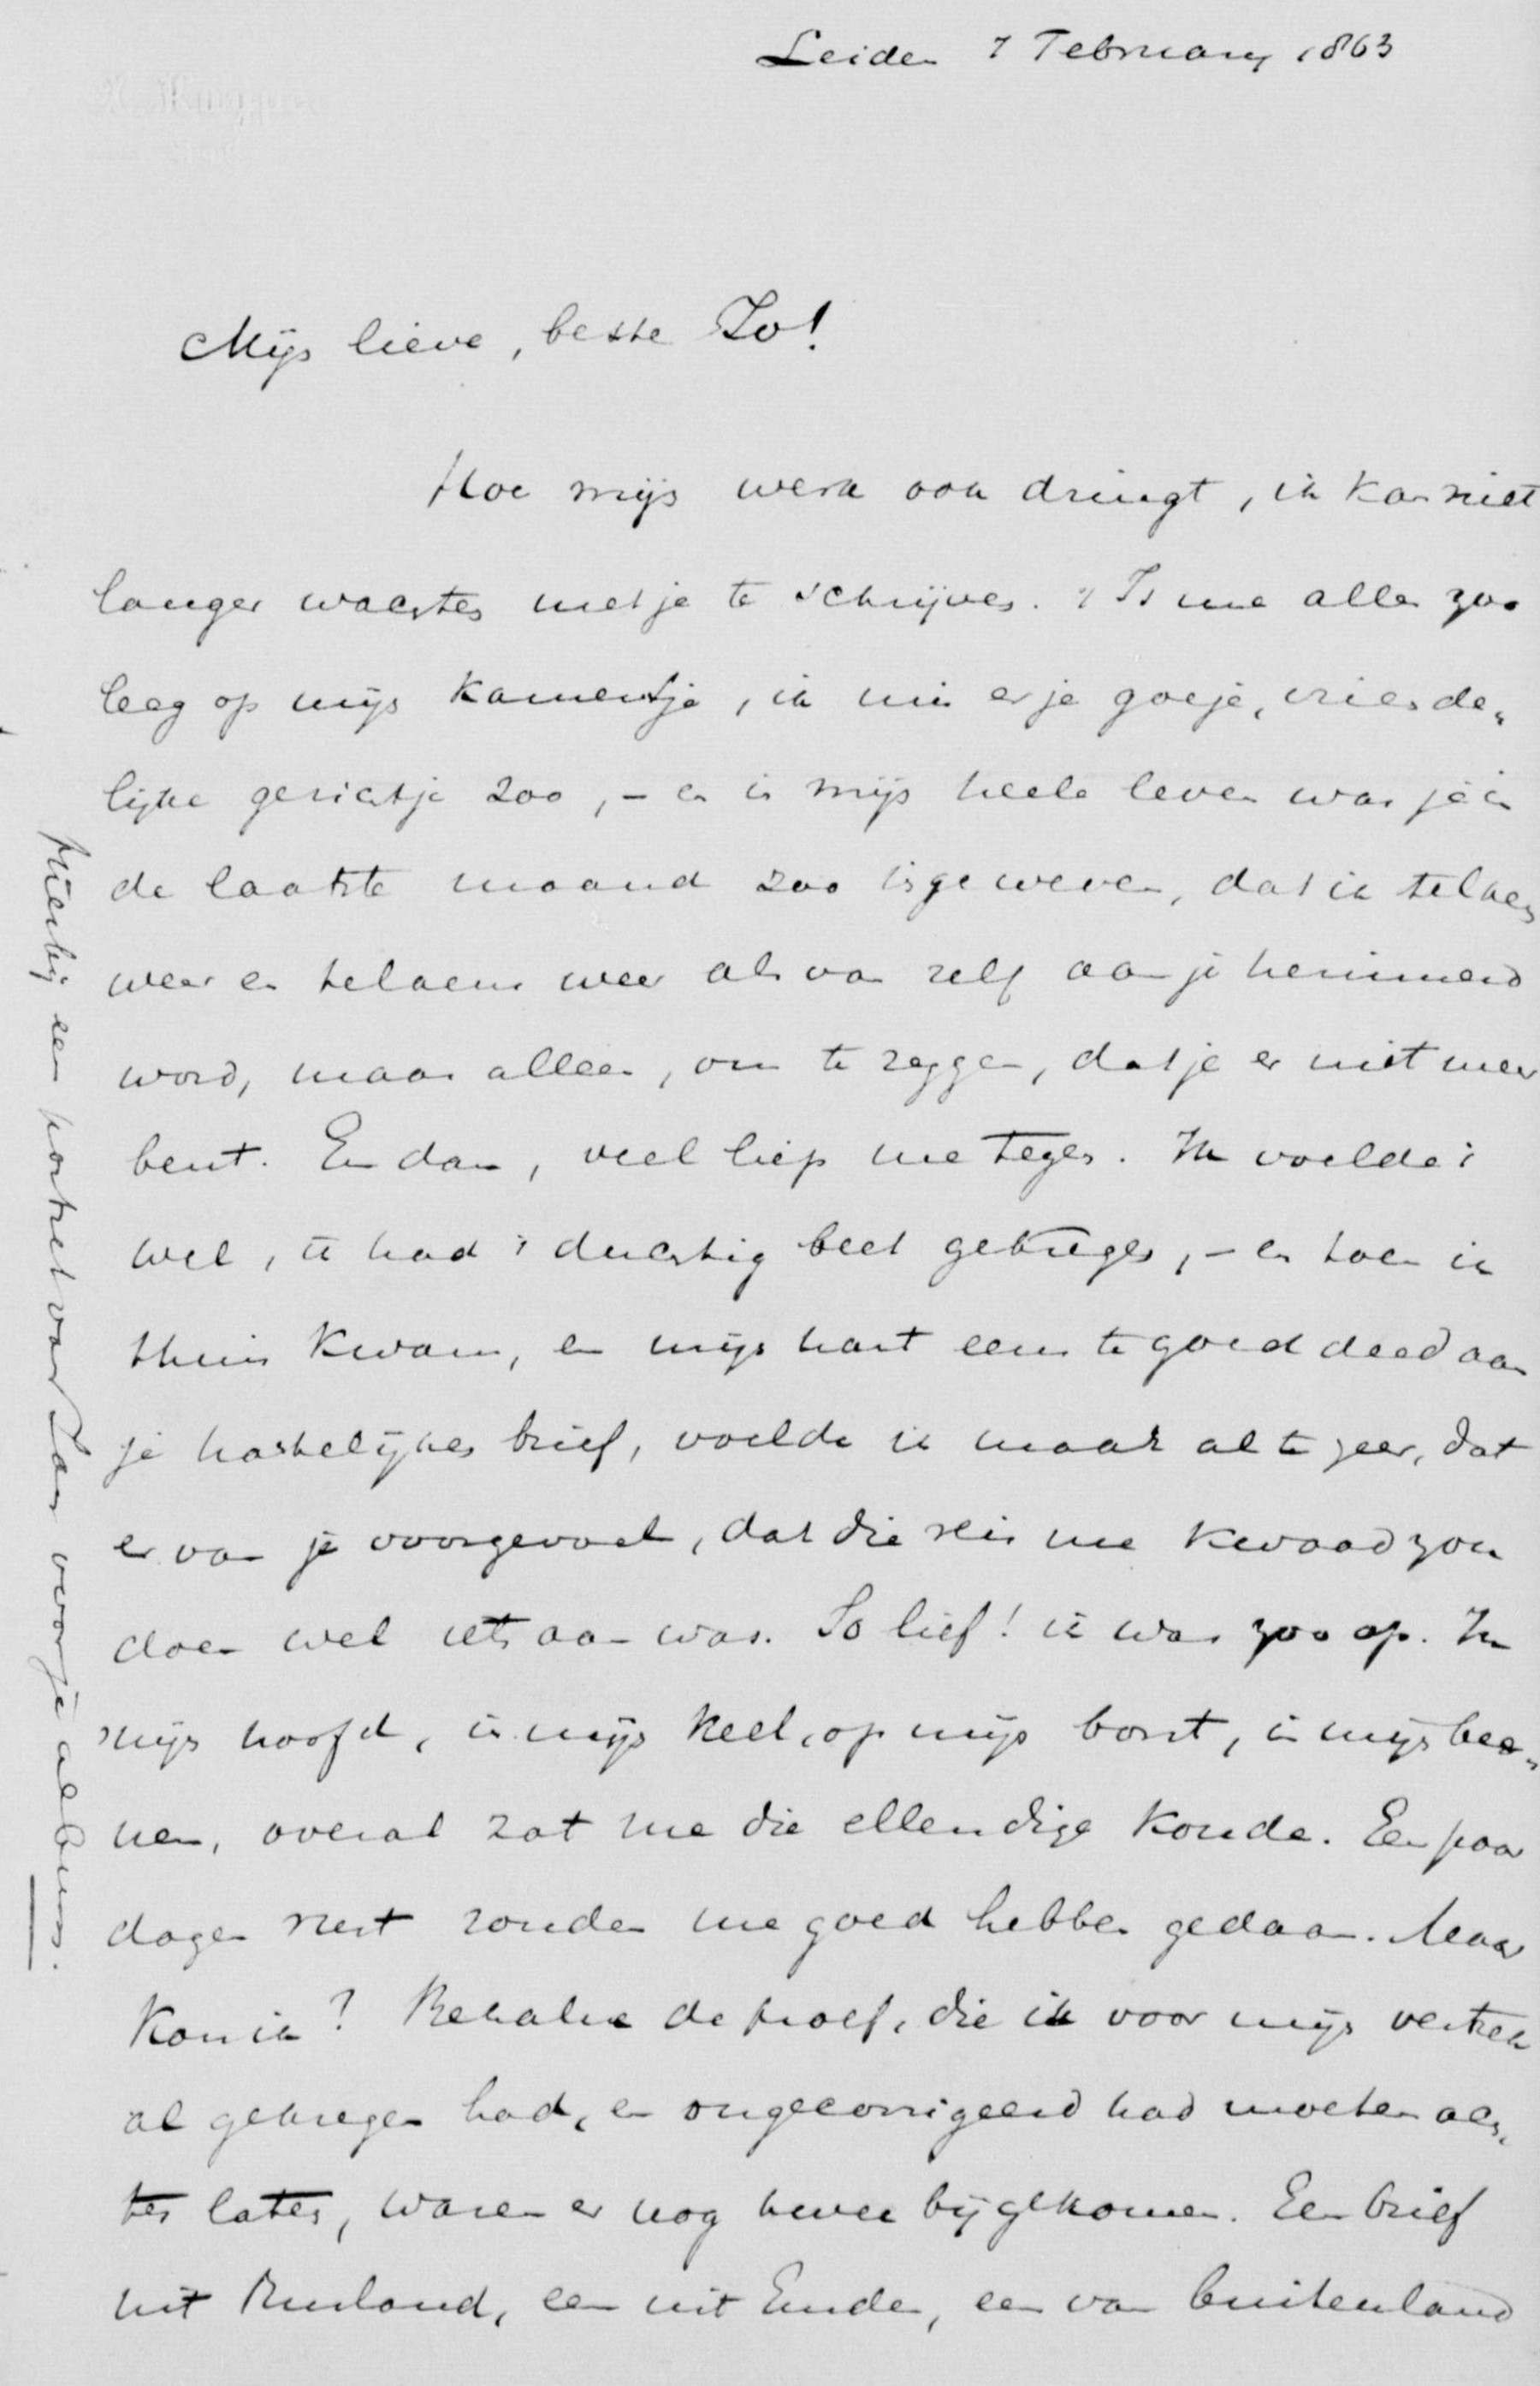 Leiden 7 February 1863
Mijn lieve, beste Jo!
Hoe mijn werk ook dringt, ik kan niet
langer wachten met je te schrijven. 't Is me alles zoo
leeg op mijn kamertje, ik mis er je goeje, vriende„
lijke gezichtje zoo, – en in mijn heele leven was je in
de laatste maand zoo ingeweven, dat ik telkens
weer en telkens weer als van zelf aan je herinnerd
word, maar alleen, om te zeggen, dat je er niet meer
bent. En dan, veel liep me tegen. Ik voelde 't
wel, ik had 't duchtig beet gekregen, – en toen ik
thuis kwam, en mijn hart eens te goed deed aan
je hartelijken brief, voelde ik maar al te zeer, dat
er van je voorgevoel, dat die reis me kwaad zou
doen wel iets aan was. Jo lief! ik was zoo op. In
mijn hoofd, in mijn keel, op mijn borst, in mijn bee„
nen, overal zat me die ellendige koude. Een paar
dagen rust zouden me goed hebben gedaan. Maar
kon ik? Behalve de proef, die ik voor mijn vertrek
al gekregen had, en ongecorrigeerd had moeten ach„
ter laten, waren er nog twee bijgekomen. Een brief
uit Rusland, een uit Emden, een van buitenland
Hierbij een portret van Jan voor je album.